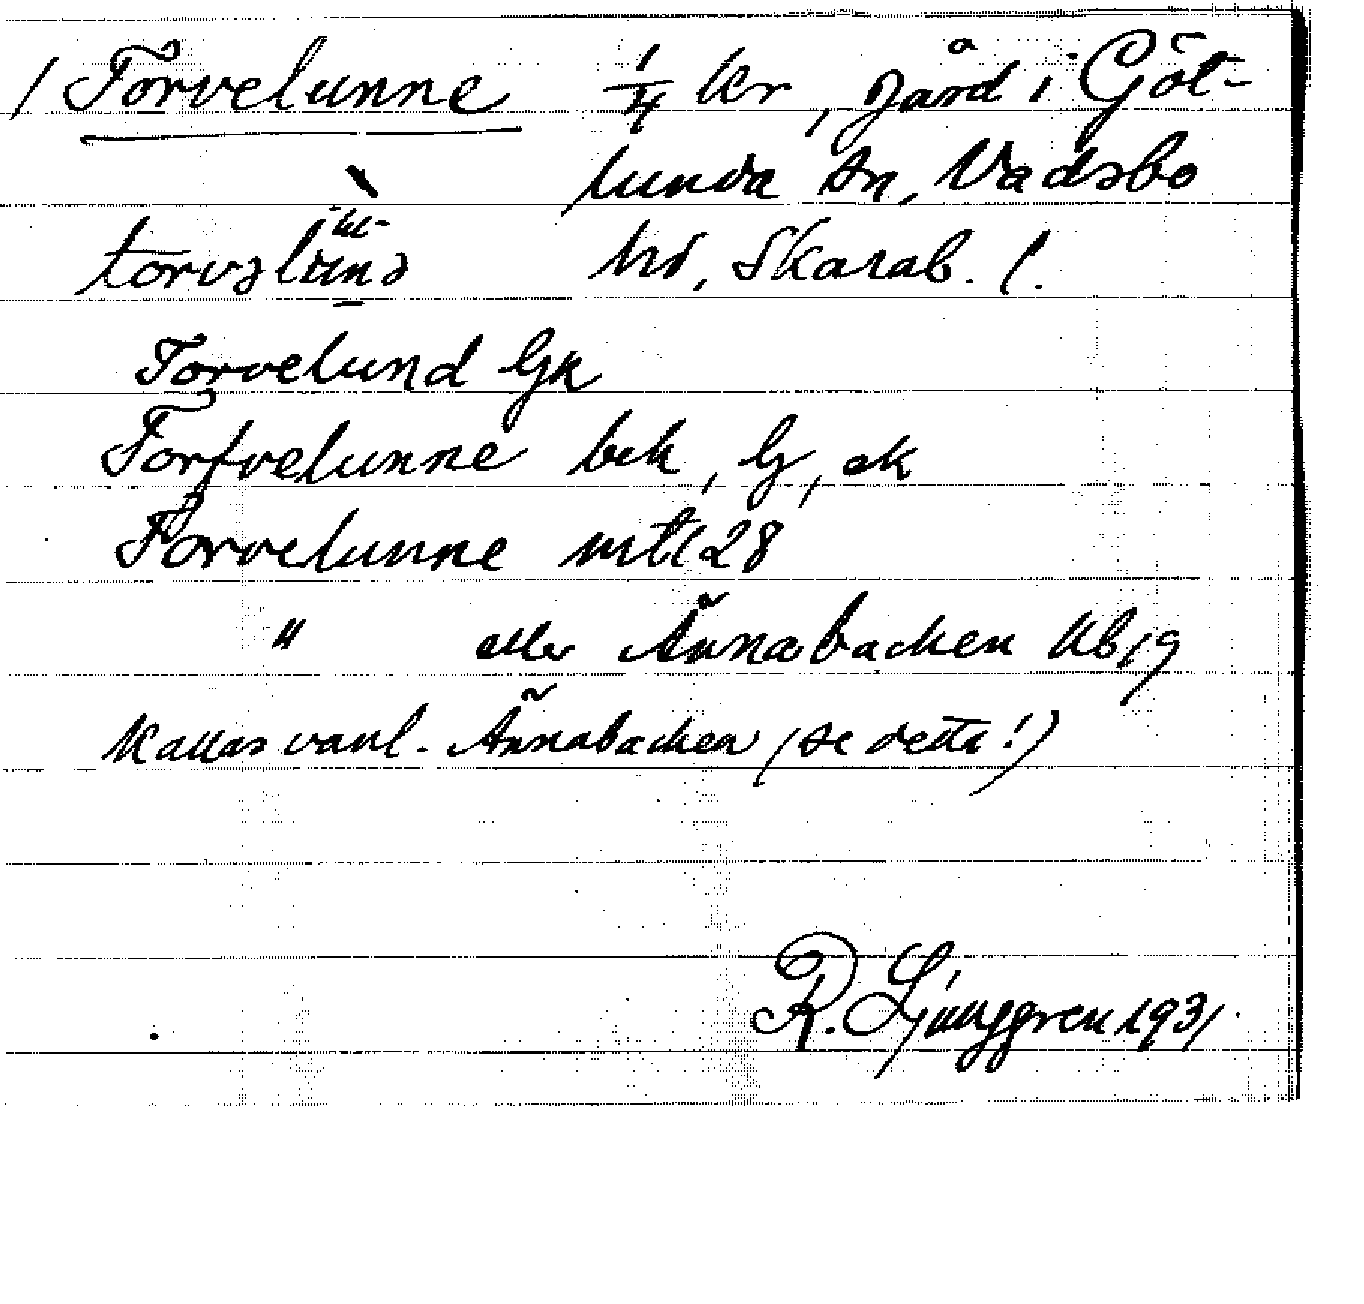 / Torvelunne 1/4 kr, gård i Göt-
lunda sn, Vadsbo
torvəlunə hd, Skarab. l.
Torvelund Gk
Torfvelunne bck, G, ek
Torvelunne mtl 28
" eller Ännabacken Ub, g
Kallas vanl. Ännabacken (se detta!)
R. Ljunggren 1931.